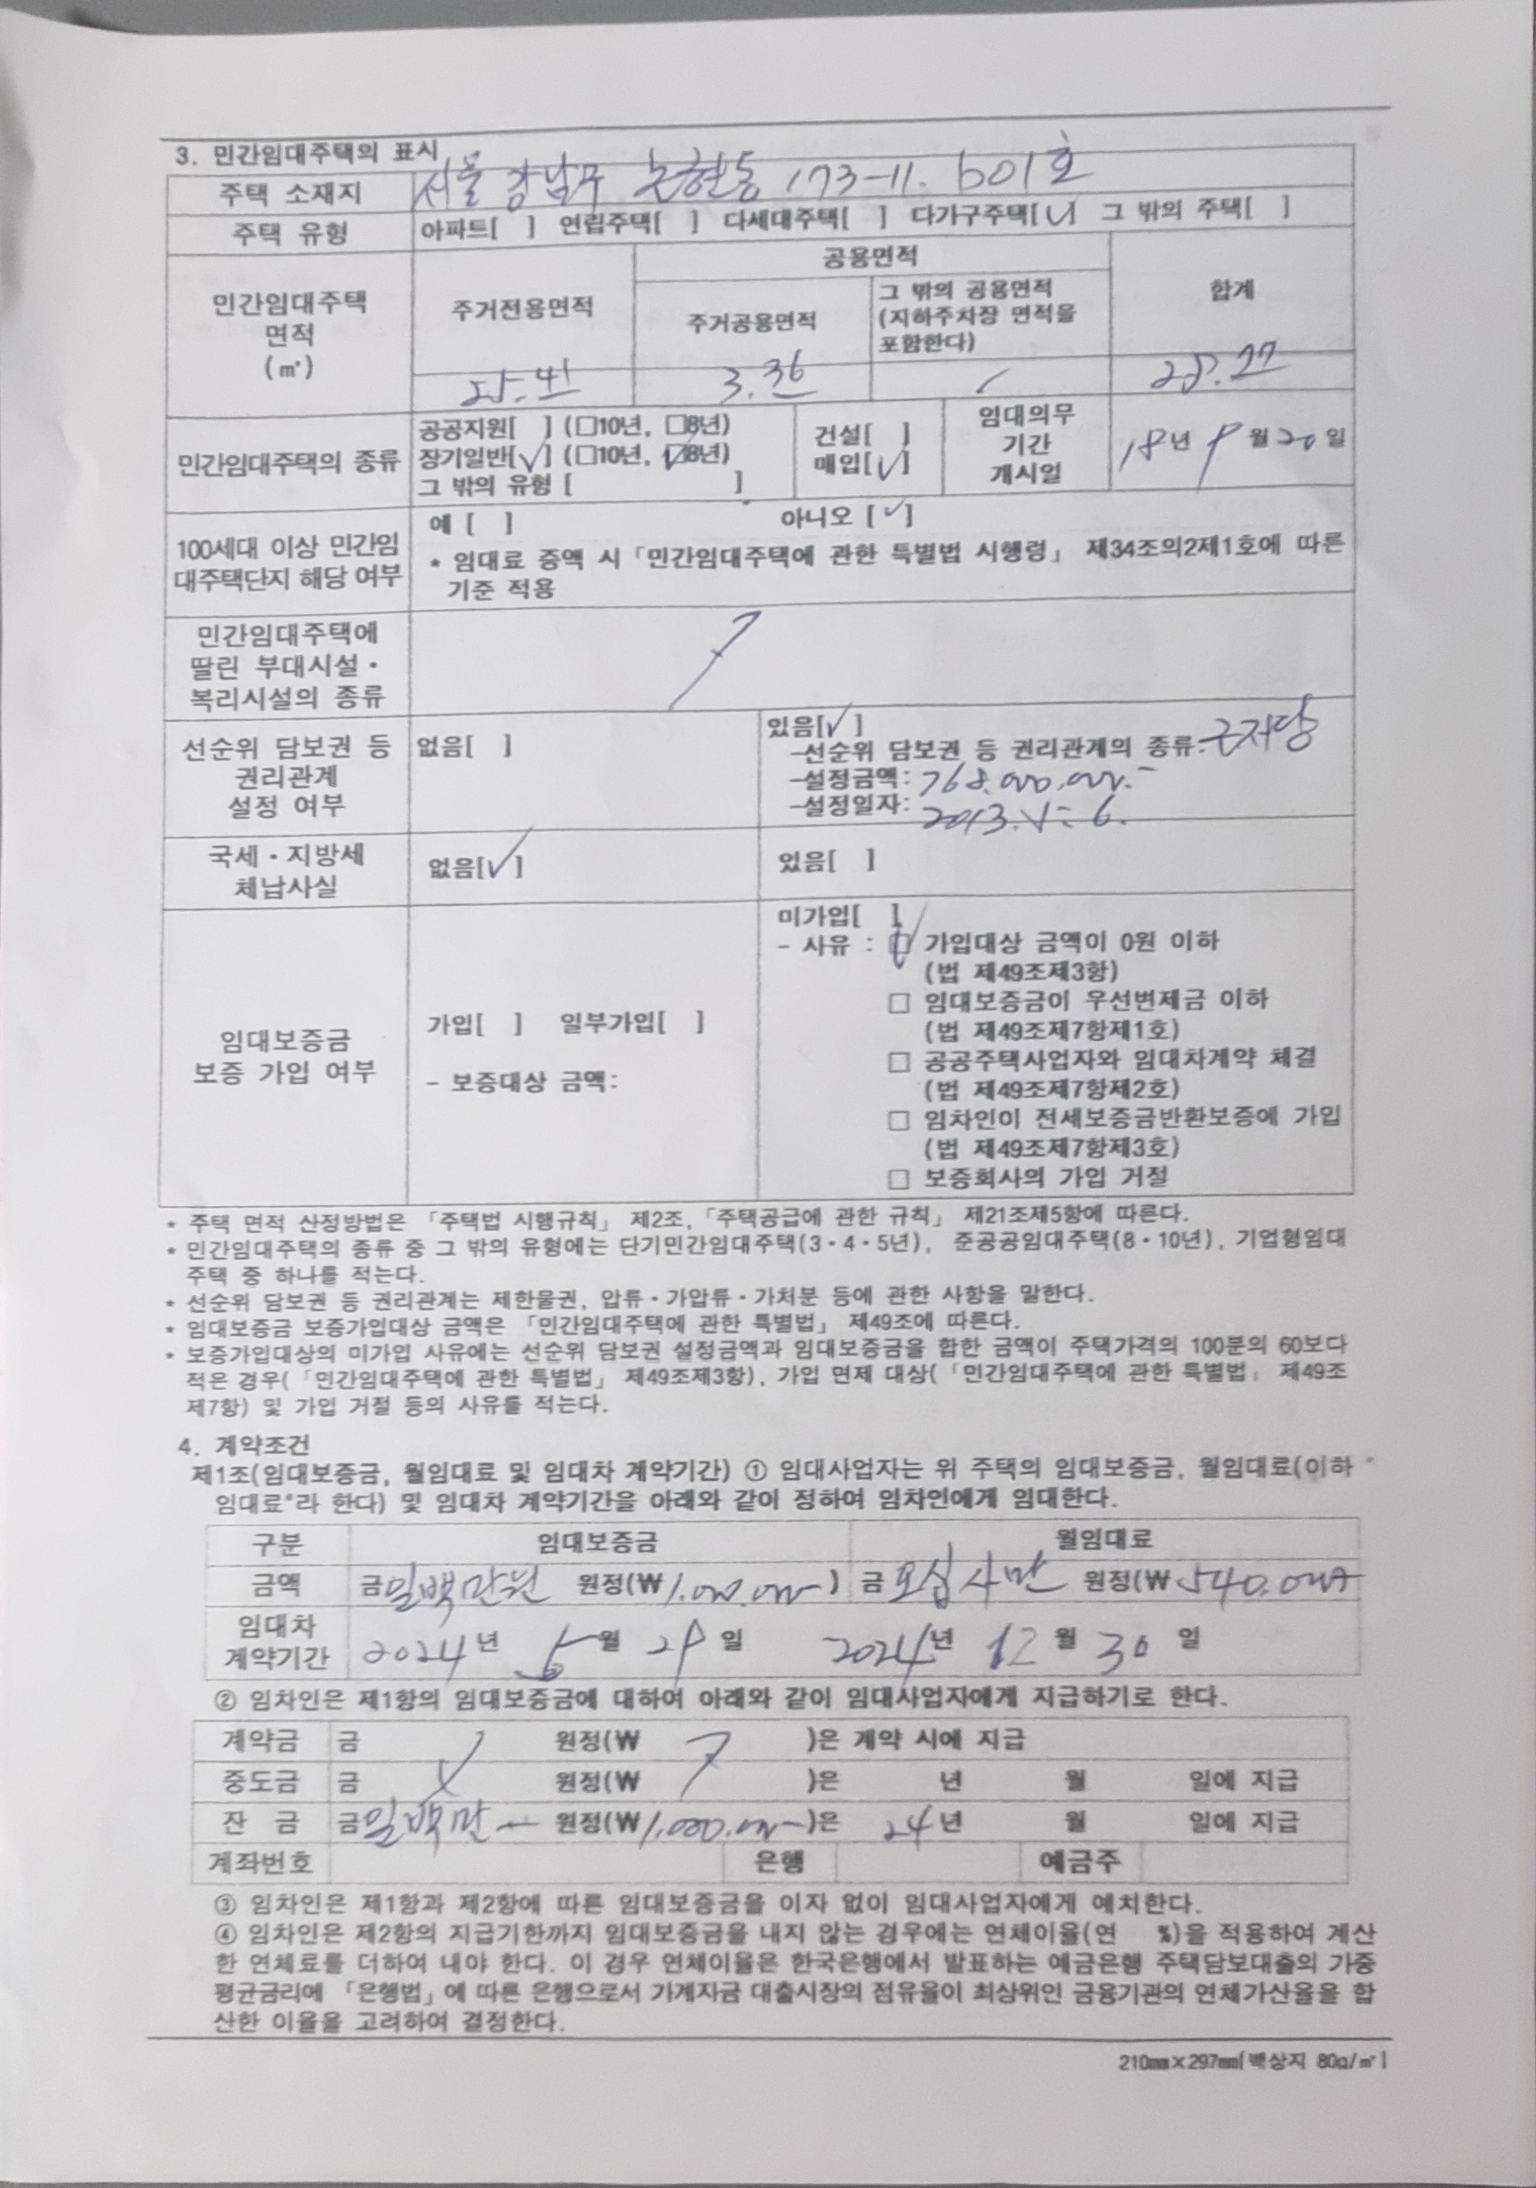 3. 민간임대주택의 표시
주택 소재지 서울 강남구 논현동 173-11. b01호
주택 유형 아파트[ ] 연립주택[ ] 다세대주택[ ] 다가구주택[√] 그 밖의 주택[ ]
민간임대주택 면적 (㎡)
주거전용면적
공용면적
주거공용면적
그 밖의 공용면적
(지하주차장 면적을
포함한다)
합계
25.41 3.36 / 28.77
민간임대주택의 종류
공공지원[ ] (□10년, □8년)
장기일반[√] (□10년, ☑8년)
그 밖의 유형 [ ]
건설[ ]
매입[√]
임대의무
기간
개시일
18년 9월 20일
100세대 이상 민간임
대주택단지 해당 여부
예 [ ] 아니오 [√]
* 임대료 증액 시「민간임대주택에 관한 특별법 시행령」 제34조의2제1호에 따른
기준 적용
민간임대주택에
딸린 부대시설·
복리시설의 종류
선순위 담보권 등
권리관계
설정 여부
없음[ ]
있음[√]
-선순위 담보권 등 권리관계의 종류: 근저당
-설정금액: 768.000.000.-
-설정일자: 2013.
국세·지방세
체납사실
없음[√] 있음[ ]
임대보증금
보증 가입 여부
가입[ ] 일부가입[ ]
- 보증대상 금액:
미가입[ ]
- 사유 : ☑ 가입대상 금액이 0원 이하
(법 제49조제3항)
□ 임대보증금이 우선변제금 이하
(법 제49조제7항제1호)
□ 공공주택사업자와 임대차계약 체결
(법 제49조제7항제2호)
□ 임차인이 전세보증금반환보증에 가입
(법 제49조제7항제3호)
□ 보증회사의 가입 거절
* 주택 면적 산정방법은 「주택법 시행규칙」 제2조,「주택공급에 관한 규칙」 제21조제5항에 따른다.
* 민간임대주택의 종류 중 그 밖의 유형에는 단기민간임대주택(3·4·5년), 준공공임대주택(8·10년), 기업형임대
주택 중 하나를 적는다.
* 선순위 담보권 등 권리관계는 제한물권, 압류·가압류·가처분 등에 관한 사항을 말한다.
* 임대보증금 보증가입대상 금액은 「민간임대주택에 관한 특별법」 제49조에 따른다.
* 보증가입대상의 미가입 사유에는 선순위 담보권 설정금액과 임대보증금을 합한 금액이 주택가격의 100분의 60보다
적은 경우(「민간임대주택에 관한 특별법」 제49조제3항), 가입 면제 대상(「민간임대주택에 관한 특별법」 제49조
제7항) 및 가입 거절 등의 사유를 적는다.
4. 계약조건
제1조(임대보증금, 월임대료 및 임대차 계약기간) ① 임대사업자는 위 주택의 임대보증금, 월임대료(이하 "
임대료"라 한다) 및 임대차 계약기간을 아래와 같이 정하여 임차인에게 임대한다.
구분 임대보증금 월임대료
금액 금일백만원 원정(₩1.000.000-) 금 오십사만 원정(₩540.000
임대차
계약기간
2024년 6월 29일 2024년 12월 30일
② 임차인은 제1항의 임대보증금에 대하여 아래와 같이 임대사업자에게 지급하기로 한다.
계약금 금 원정(₩ )은 계약 시에 지급
중도금 금 원정(₩ )은 년 월 일에 지급
잔 금 금일백만 원정(₩1.000.000-)은 24년 월 일에 지급
계좌번호 은행 예금주
③ 임차인은 제1항과 제2항에 따른 임대보증금을 이자 없이 임대사업자에게 예치한다.
④ 임차인은 제2항의 지급기한까지 임대보증금을 내지 않는 경우에는 연체이율(연 %)을 적용하여 계산
한 연체료를 더하여 내야 한다. 이 경우 연체이율은 한국은행에서 발표하는 예금은행 주택담보대출의 가중
평균금리에 「은행법」에 따른 은행으로서 가계자금 대출시장의 점유율이 최상위인 금융기관의 연체가산율을 합
산한 이율을 고려하여 결정한다.
210㎜×297㎜[백상지 80g/㎡]